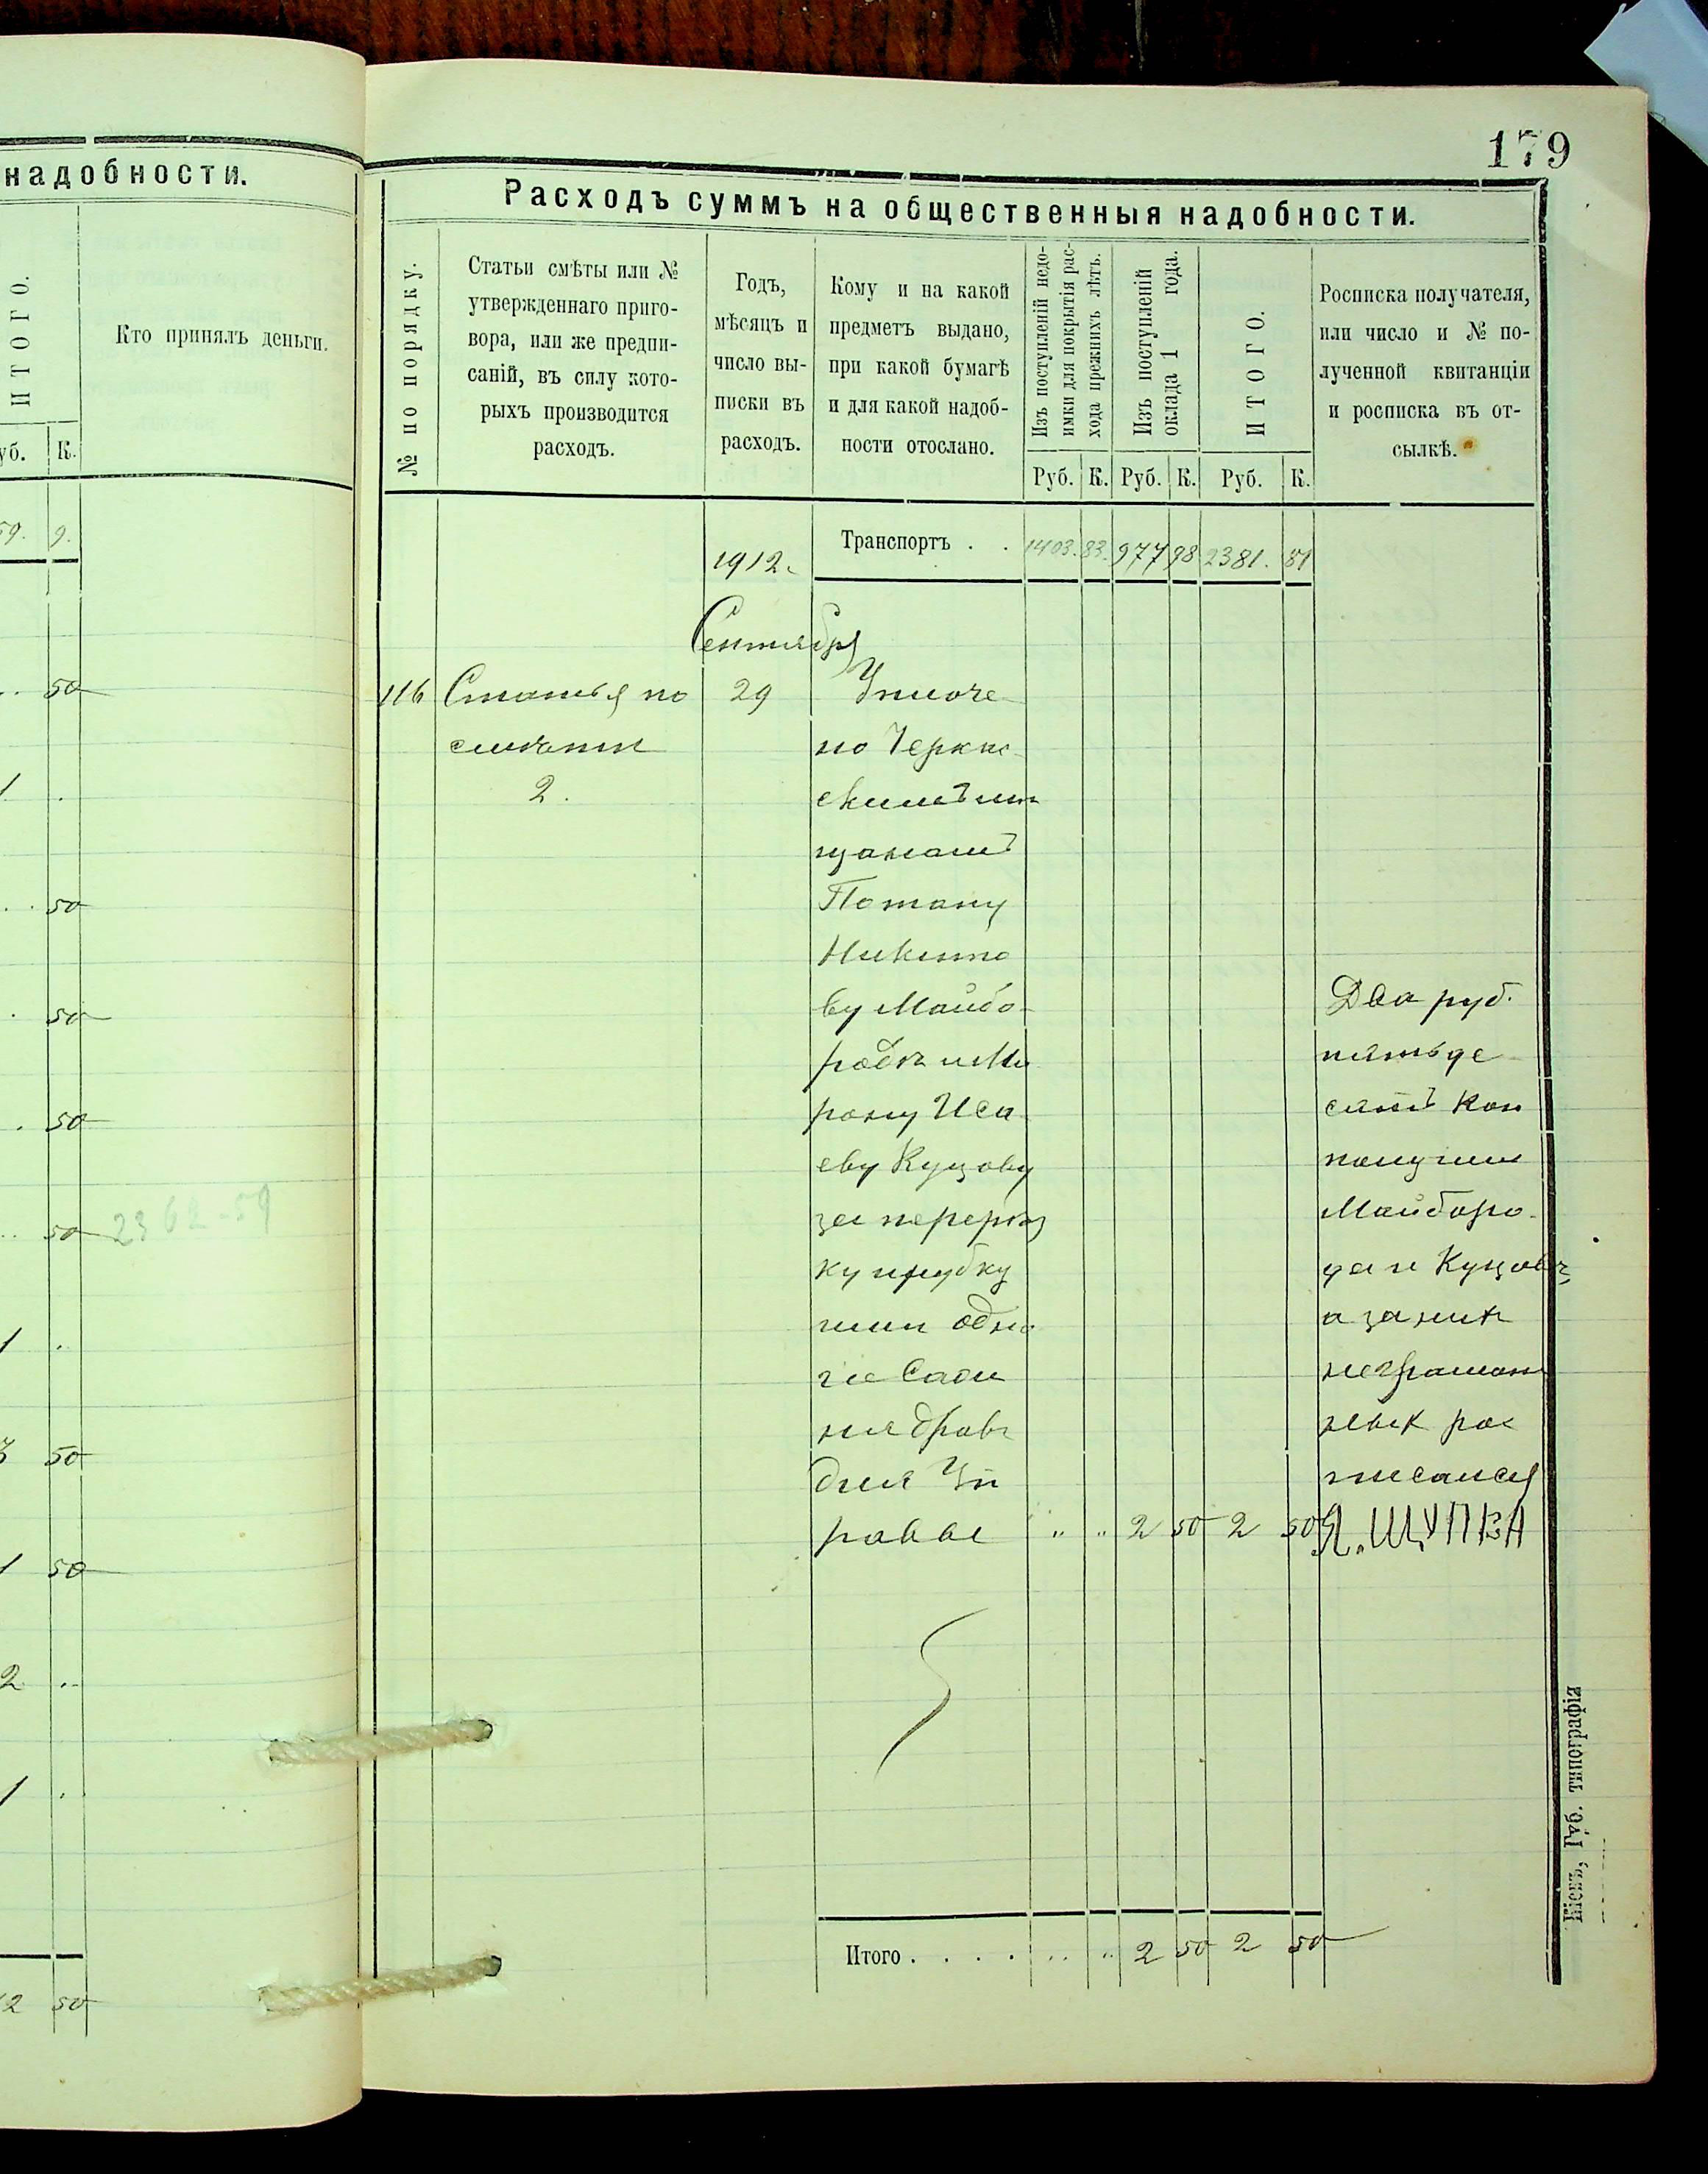 надобности.
ИТОГО.
Кто принялъ деньги.
уб.
К.
59.
9.
50
1
.
50
50
50
50
2362-59
1
.
3
50
1
50
2
..
1
.
2
50
179
Расходъ суммъ на общественныя надобности.
№ по порядку.
Статьи смѣты или №
утвержденнаго приго-
вора, или же предпи-
саній, въ силу кото-
рыхъ производится
расходъ.
Годъ,
мѣсяцъ и
число вы-
писки въ
расходъ.
Кому и на какой
предметъ выдано,
при какой бумагѣ
и для какой надоб-
ности отослано.
Изъ поступленій недо-
имки для покрытія рас-
хода прежнихъ лѣтъ.
Изъ поступленій
оклада 1 года.
ИТОГО.
Росписка получателя,
или число и № по-
лученной квитанціи
и росписка въ от-
сылкѣ.
Руб. К. Руб. К. Руб. К.
Транспортъ . . 1403. 83. 977 98 2381. 81
1912.
Сентября
116
Статья по
смѣтѣ
2.
29
Уплоче
но Черкас
скимъ мѣ
щанамъ
Потапу
Никито
ву Майбо-
родѣ и Ми
рону Иса
еву Куцову
за перерѣз
ку и рубку
ими одно
го саже
ня дровъ
для Уп
равы
" " 2 50 2 50
Два руб.
пятьде
сятъ коп
получили
Майборо-
да и Куцовъ,
а за нихъ
неграмот
ныхъ рос
писался
Я. ЩУПКА
Итого . . . . .. .. 2 50 2 50
Кіевъ, Губ. типографія